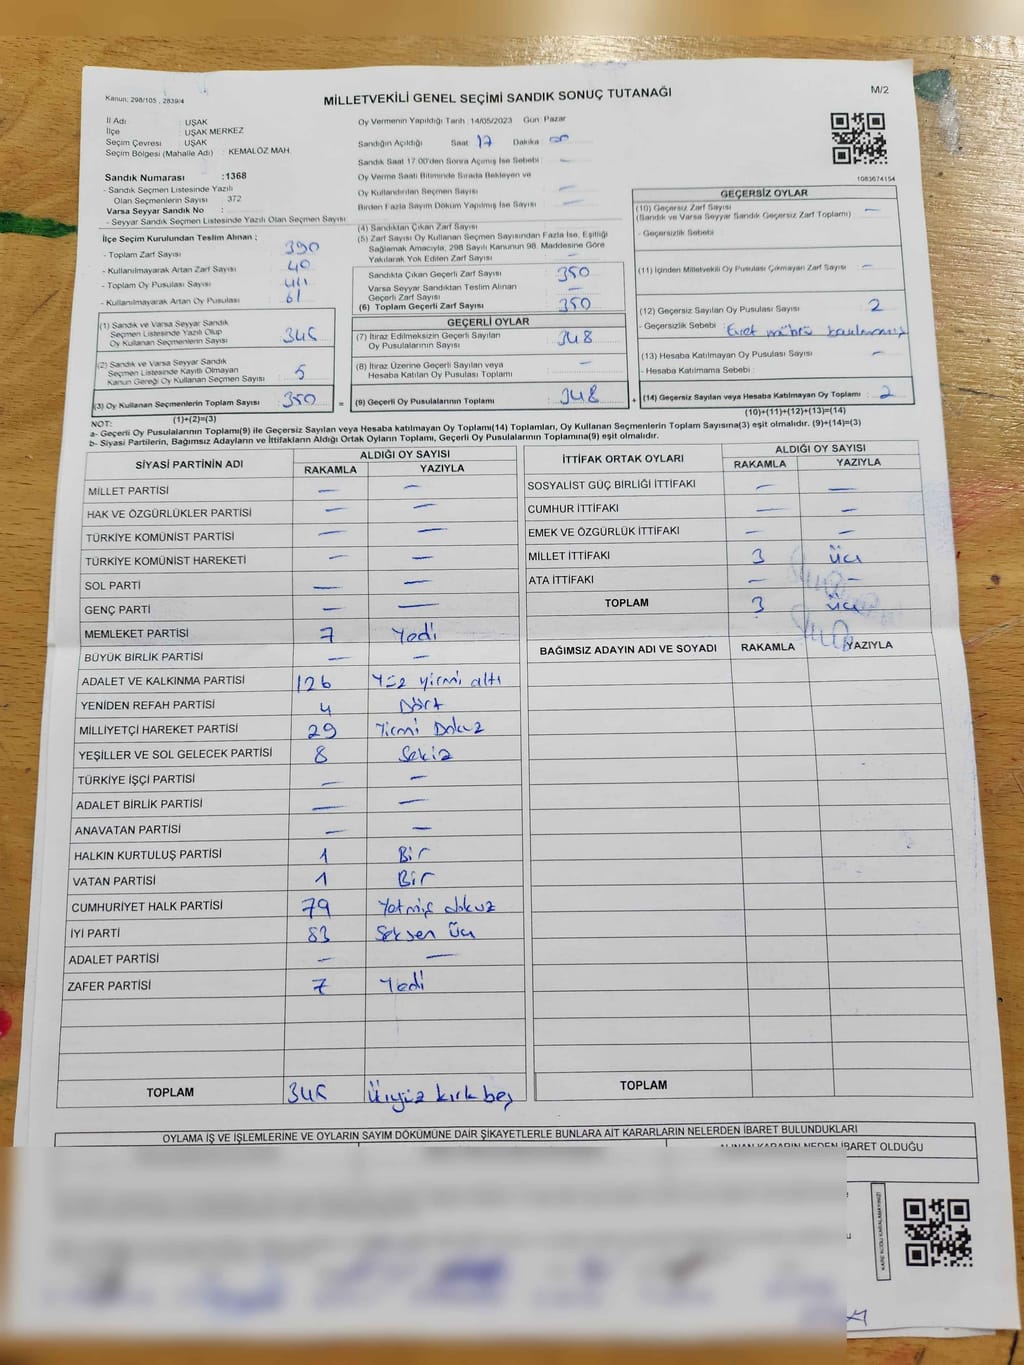 Kanun: 298/105 , 2839/4
MİLLETVEKİLİ GENEL SEÇİMİ SANDIK SONUÇ TUTANAĞI
M/2
İl Adı : UŞAK
İlçe : UŞAK MERKEZ
Seçim Çevresi : UŞAK
Seçim Bölgesi (Mahalle Adı) : KEMALÖZ MAH.
Sandık Numarası :1368
- Sandık Seçmen Listesinde Yazılı
Olan Seçmenlerin Sayısı : 372
Varsa Seyyar Sandık No :
- Seyyar Sandık Seçmen Listesinde Yazılı Olan Seçmen Sayısı
Oy Vermenin Yapıldığı Tarih :14/05/2023 Gün: Pazar
Sandığın Açıldığı Saat 17 Dakika 00
Sandık Saat 17:00'den Sonra Açılmış İse Sebebi : —
Oy Verme Saati Bitiminde Sırada Bekleyen ve
Oy Kullandırılan Seçmen Sayısı : —
Birden Fazla Sayım Döküm Yapılmış İse Sayısı : —
1083674154
İlçe Seçim Kurulundan Teslim Alınan ;
- Toplam Zarf Sayısı : 390
- Kullanılmayarak Artan Zarf Sayısı : 40
- Toplam Oy Pusulası : 411
- Kullanılmayarak Artan Oy Pusulası : 61
(1) Sandık ve Varsa Seyyar Sandık
Seçmen Listesinde Yazılı Olup
Oy Kullanan Seçmenlerin Sayısı : 345
(2) Sandık ve Varsa Seyyar Sandık
Seçmen Listesinde Kayıtlı Olmayan
Kanun Gereği Oy Kullanan Seçmen Sayısı : 5
(3) Oy Kullanan Seçmenlerin Toplam Sayısı : 350
(4) Sandıktan Çıkan Zarf Sayısı
(5) Zarf Sayısı Oy Kullanan Seçmen Sayısından Fazla İse, Eşitliği
Sağlamak Amacıyla, 298 Sayılı Kanunun 98. Maddesine Göre
Yakılarak Yok Edilen Zarf Sayısı : —
Sandıkta Çıkan Geçerli Zarf Sayısı : 350
Varsa Seyyar Sandıktan Teslim Alınan
Geçerli Zarf Sayısı : —
(6) Toplam Geçerli Zarf Sayısı : 350
GEÇERLİ OYLAR
(7) İtiraz Edilmeksizin Geçerli Sayılan
Oy Pusulalarının Sayısı : 348
(8) İtiraz Üzerine Geçerli Sayılan veya
Hesaba Katılan Oy Pusulası Toplamı : —
= (9) Geçerli Oy Pusulalarının Toplamı : 348
GEÇERSİZ OYLAR
(10) Geçersiz Zarf Sayısı
(Sandık ve Varsa Seyyar Sandık Geçersiz Zarf Toplamı) : —
- Geçersizlik Sebebi :
(11) İçinden Milletvekili Oy Pusulası Çıkmayan Zarf Sayısı : —
(12) Geçersiz Sayılan Oy Pusulası Sayısı : 2
- Geçersizlik Sebebi : Evet mührü
(13) Hesaba Katılmayan Oy Pusulası Sayısı : —
- Hesaba Katılmama Sebebi :
+ (14) Geçersiz Sayılan veya Hesaba Katılmayan Oy Toplamı : 2
NOT: (1)+(2)=(3) (10)+(11)+(12)+(13)=(14)
a- Geçerli Oy Pusulalarının Toplamı(9) ile Geçersiz veya Hesaba katılmayan Oy Toplamı(14) Toplamları, Oy Kullanan Seçmenlerin Toplam Sayısına(3) eşit olmalıdır. (9)+(14)=(3)
b- Siyasi Partilerin, Bağımsız Adayların ve İttifakların Aldığı Ortak Oyların Toplamı, Geçerli Oy Pusulalarının Toplamına(9) eşit olmalıdır.
SİYASİ PARTİNİN ADI ALDIĞI OY SAYISI
RAKAMLA YAZIYLA
MİLLET PARTİSİ — —
HAK VE ÖZGÜRLÜKLER PARTİSİ — —
TÜRKİYE KOMÜNİST PARTİSİ — —
TÜRKİYE KOMÜNİST HAREKETİ — —
SOL PARTİ — —
GENÇ PARTİ — —
MEMLEKET PARTİSİ 7 Yedi
BÜYÜK BİRLİK PARTİSİ — —
ADALET VE KALKINMA PARTİSİ 126 Yüz yirmi altı
YENİDEN REFAH PARTİSİ 4 Dört
MİLLİYETÇİ HAREKET PARTİSİ 29 Yirmi Dokuz
YEŞİLLER VE SOL GELECEK PARTİSİ 8 Sekiz
TÜRKİYE İŞÇİ PARTİSİ — —
ADALET BİRLİK PARTİSİ — —
ANAVATAN PARTİSİ — —
HALKIN KURTULUŞ PARTİSİ 1 Bir
VATAN PARTİSİ 1 Bir
CUMHURİYET HALK PARTİSİ 79 Yetmiş dokuz
İYİ PARTİ 83 Seksen Üç
ADALET PARTİSİ — —
ZAFER PARTİSİ 7 Yedi
TOPLAM 345 Üçyüz kırk beş
İTTİFAK ORTAK OYLARI ALDIĞI OY SAYISI
RAKAMLA YAZIYLA
SOSYALİST GÜÇ BİRLİĞİ İTTİFAKI — —
CUMHUR İTTİFAKI — —
EMEK VE ÖZGÜRLÜK İTTİFAKI — —
MİLLET İTTİFAKI 3 Üç
ATA İTTİFAKI — —
TOPLAM 3 Üç
BAĞIMSIZ ADAYIN ADI VE SOYADI RAKAMLA YAZIYLA
TOPLAM
OYLAMA İŞ VE İŞLEMLERİNE VE OYLARIN SAYIM DÖKÜMÜNE DAİR ŞİKAYETLERLE BUNLARA AİT KARARLARIN NELERDEN İBARET BULUNDUKLARI
ALINAN KARARIN NEDEN İBARET OLDUĞU
KARE KODU KARALAMAYINIZ!